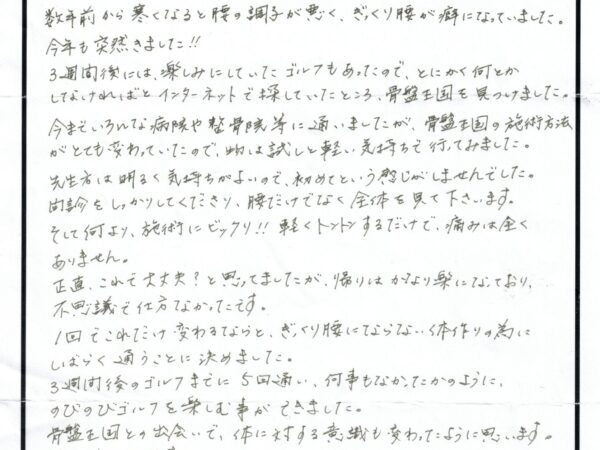 数年前から寒くなると腰の調子が悪く、ぎっくり腰が癖になっていました。
今年も突然きました!!
3週間後には、楽しみにしていたゴルフもあったので、とにかく何とか
しなければとインターネットで探していたところ、骨盤王国を見つけました。
今までいろんな病院や整骨院等に通いましたが、骨盤王国の施術方法
がとても変わっていたので、物は試しと軽い気持ちで行ってみました。
先生方は明るく気持ちがよいので、初めてという感じがしませんでした。
問診をしっかりしてくださり、腰だけでなく全体を見て下さいます。
そして何より、施術にビックリ!! 軽くトントンするだけで、痛みは全く
ありません。
正直、これで大丈夫?と思ってましたが、帰りはかなり楽になっており、
不思議で仕方なかったです。
1回でこれだけ変わるならと、ぎっくり腰にならない体作りの為に
しばらく通うことに決めました。
3週間後のゴルフまでに5回通い、何事もなかったかのように、
のびのびゴルフを楽しむ事ができました。
骨盤王国との出会いで、体に対する意識も変わったように思います。